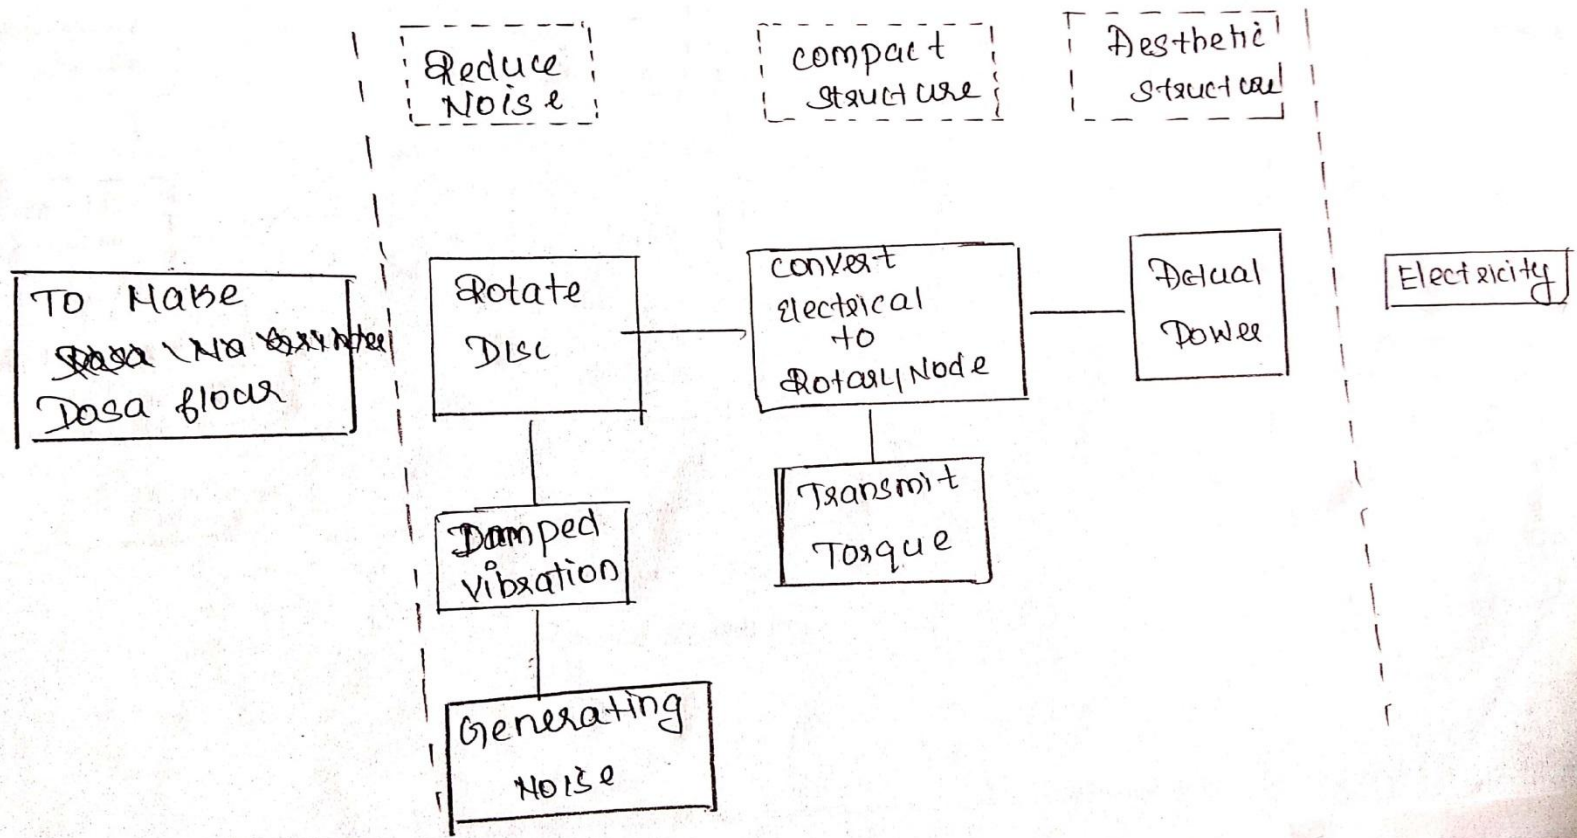 Reduce
Noise
compact
structure
Aesthetic
structure
To Make
Dosa flour
Rotate
Disc
convert
electrical
to
Rotary Node
Actual
Power
Electricity
Damped
vibration
Transmit
Torque
Generating
Noise